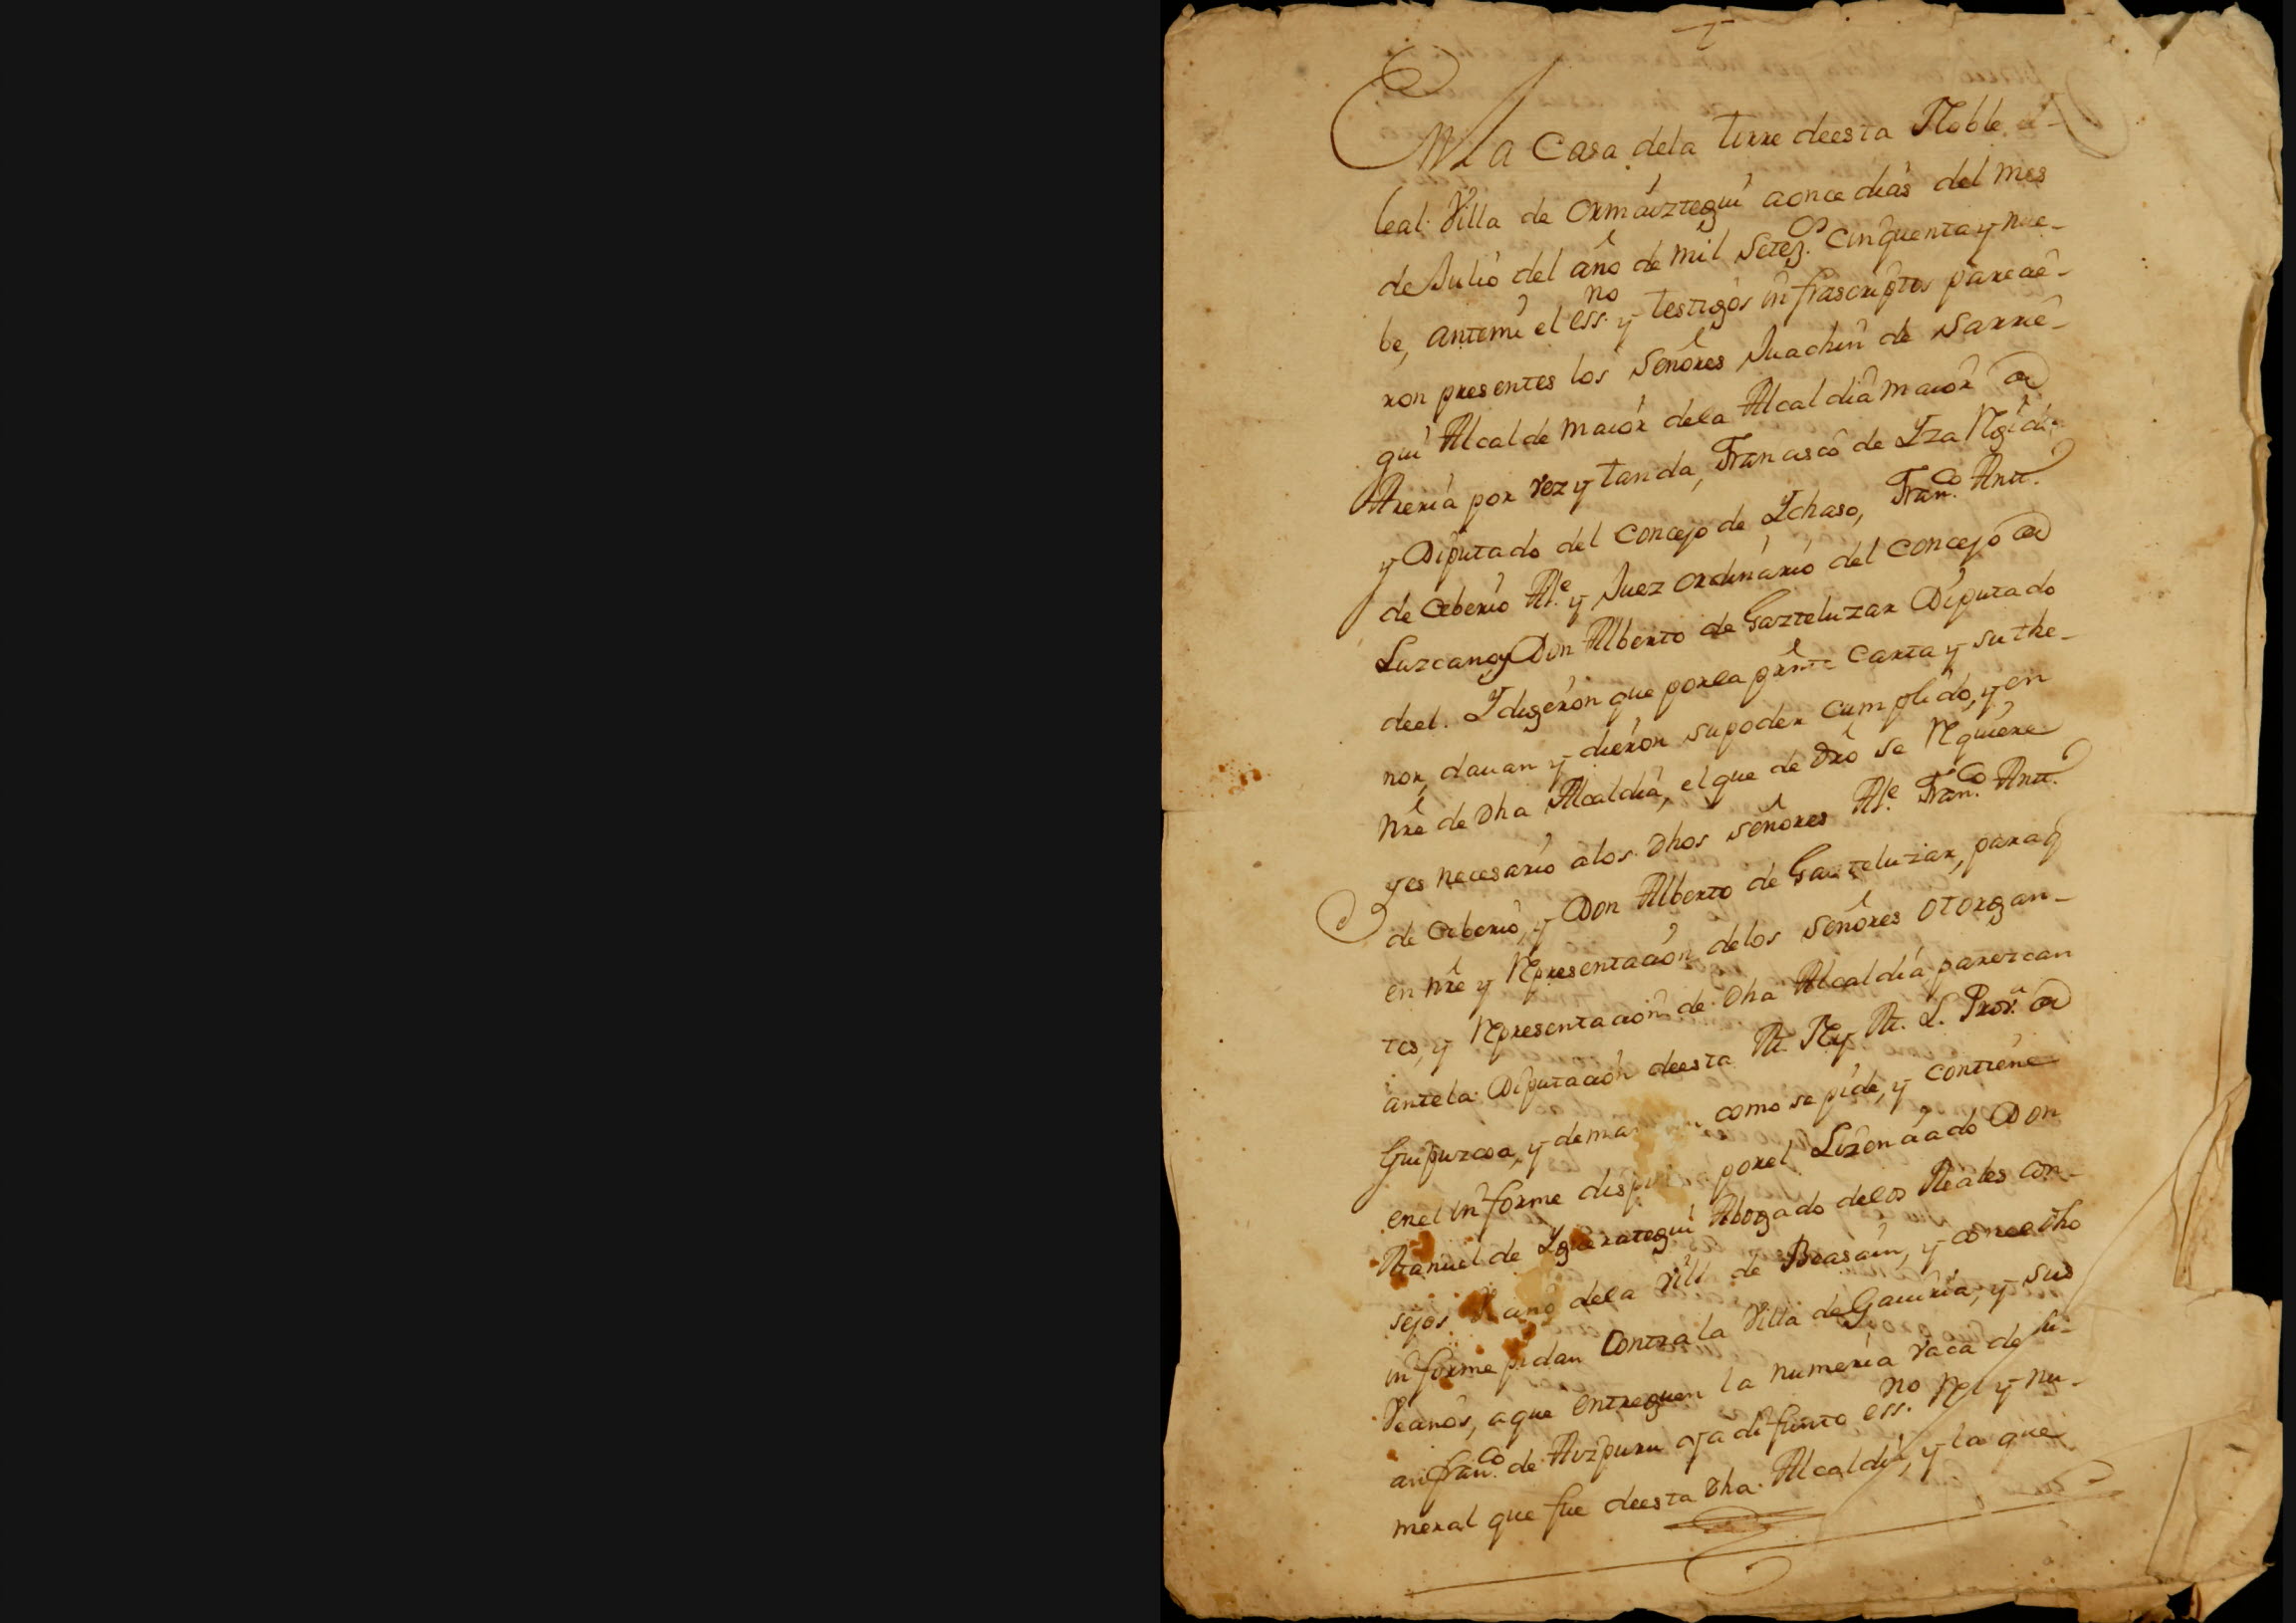 En la Casa dela torre deesta Noble y
leal Villa de Ormáiztegui a once dias del mes
de Julio del año de mil Setez.os cinquenta y nue-
be, antemi el ess.no y testigos infrascriptos parecie-
ron presentes los Señores Juachin de Sarrie-
gui Alcalde maior dela Alcaldia maior de
Areria por vez y tanda, Francisco de Yza Regidor
y Diputado del Concejo de Ychaso, Fran.co Ant.
de Ceberio Al.e y Juez ordinario del Concejo de
Lazcano y Don Alberto de Gazteluzar Diputado
deel. Y digeron que porla pr̃nte carta y su the-
nor, dauan y dieron su poder cumplido, y en
nr̃e de Dha Alcaldia, el que de Dr̃o se Requiere
y es necesario alos Dhos señores Al.e Fran.co Ant.
de Ceberio, y Don Alberto de Gazteluzar, paraq̃
en nr̃e y Representacion delos señores otorgan-
tes, y Representacion de Dha Alcaldia parezcan
antela Diputacion deesta M. N. y M. L. Prov.a de
Guipuzcoa, y como se pide, y contiene
enel informe por el Lizenciado Don
Manuel de Yguerategui Abogado delos Reales con-
sejos dela Villa de Beasain, y con el Dho
informe pidan contra la Villa de Gauiria, y sus
Vecinos, a que entreguen la numeria vaca de Ju-
an Fran.co de Aizpuru ya difunto ess.no Rel y nu-
meral que fue deesta Dha Alcaldia, y la que